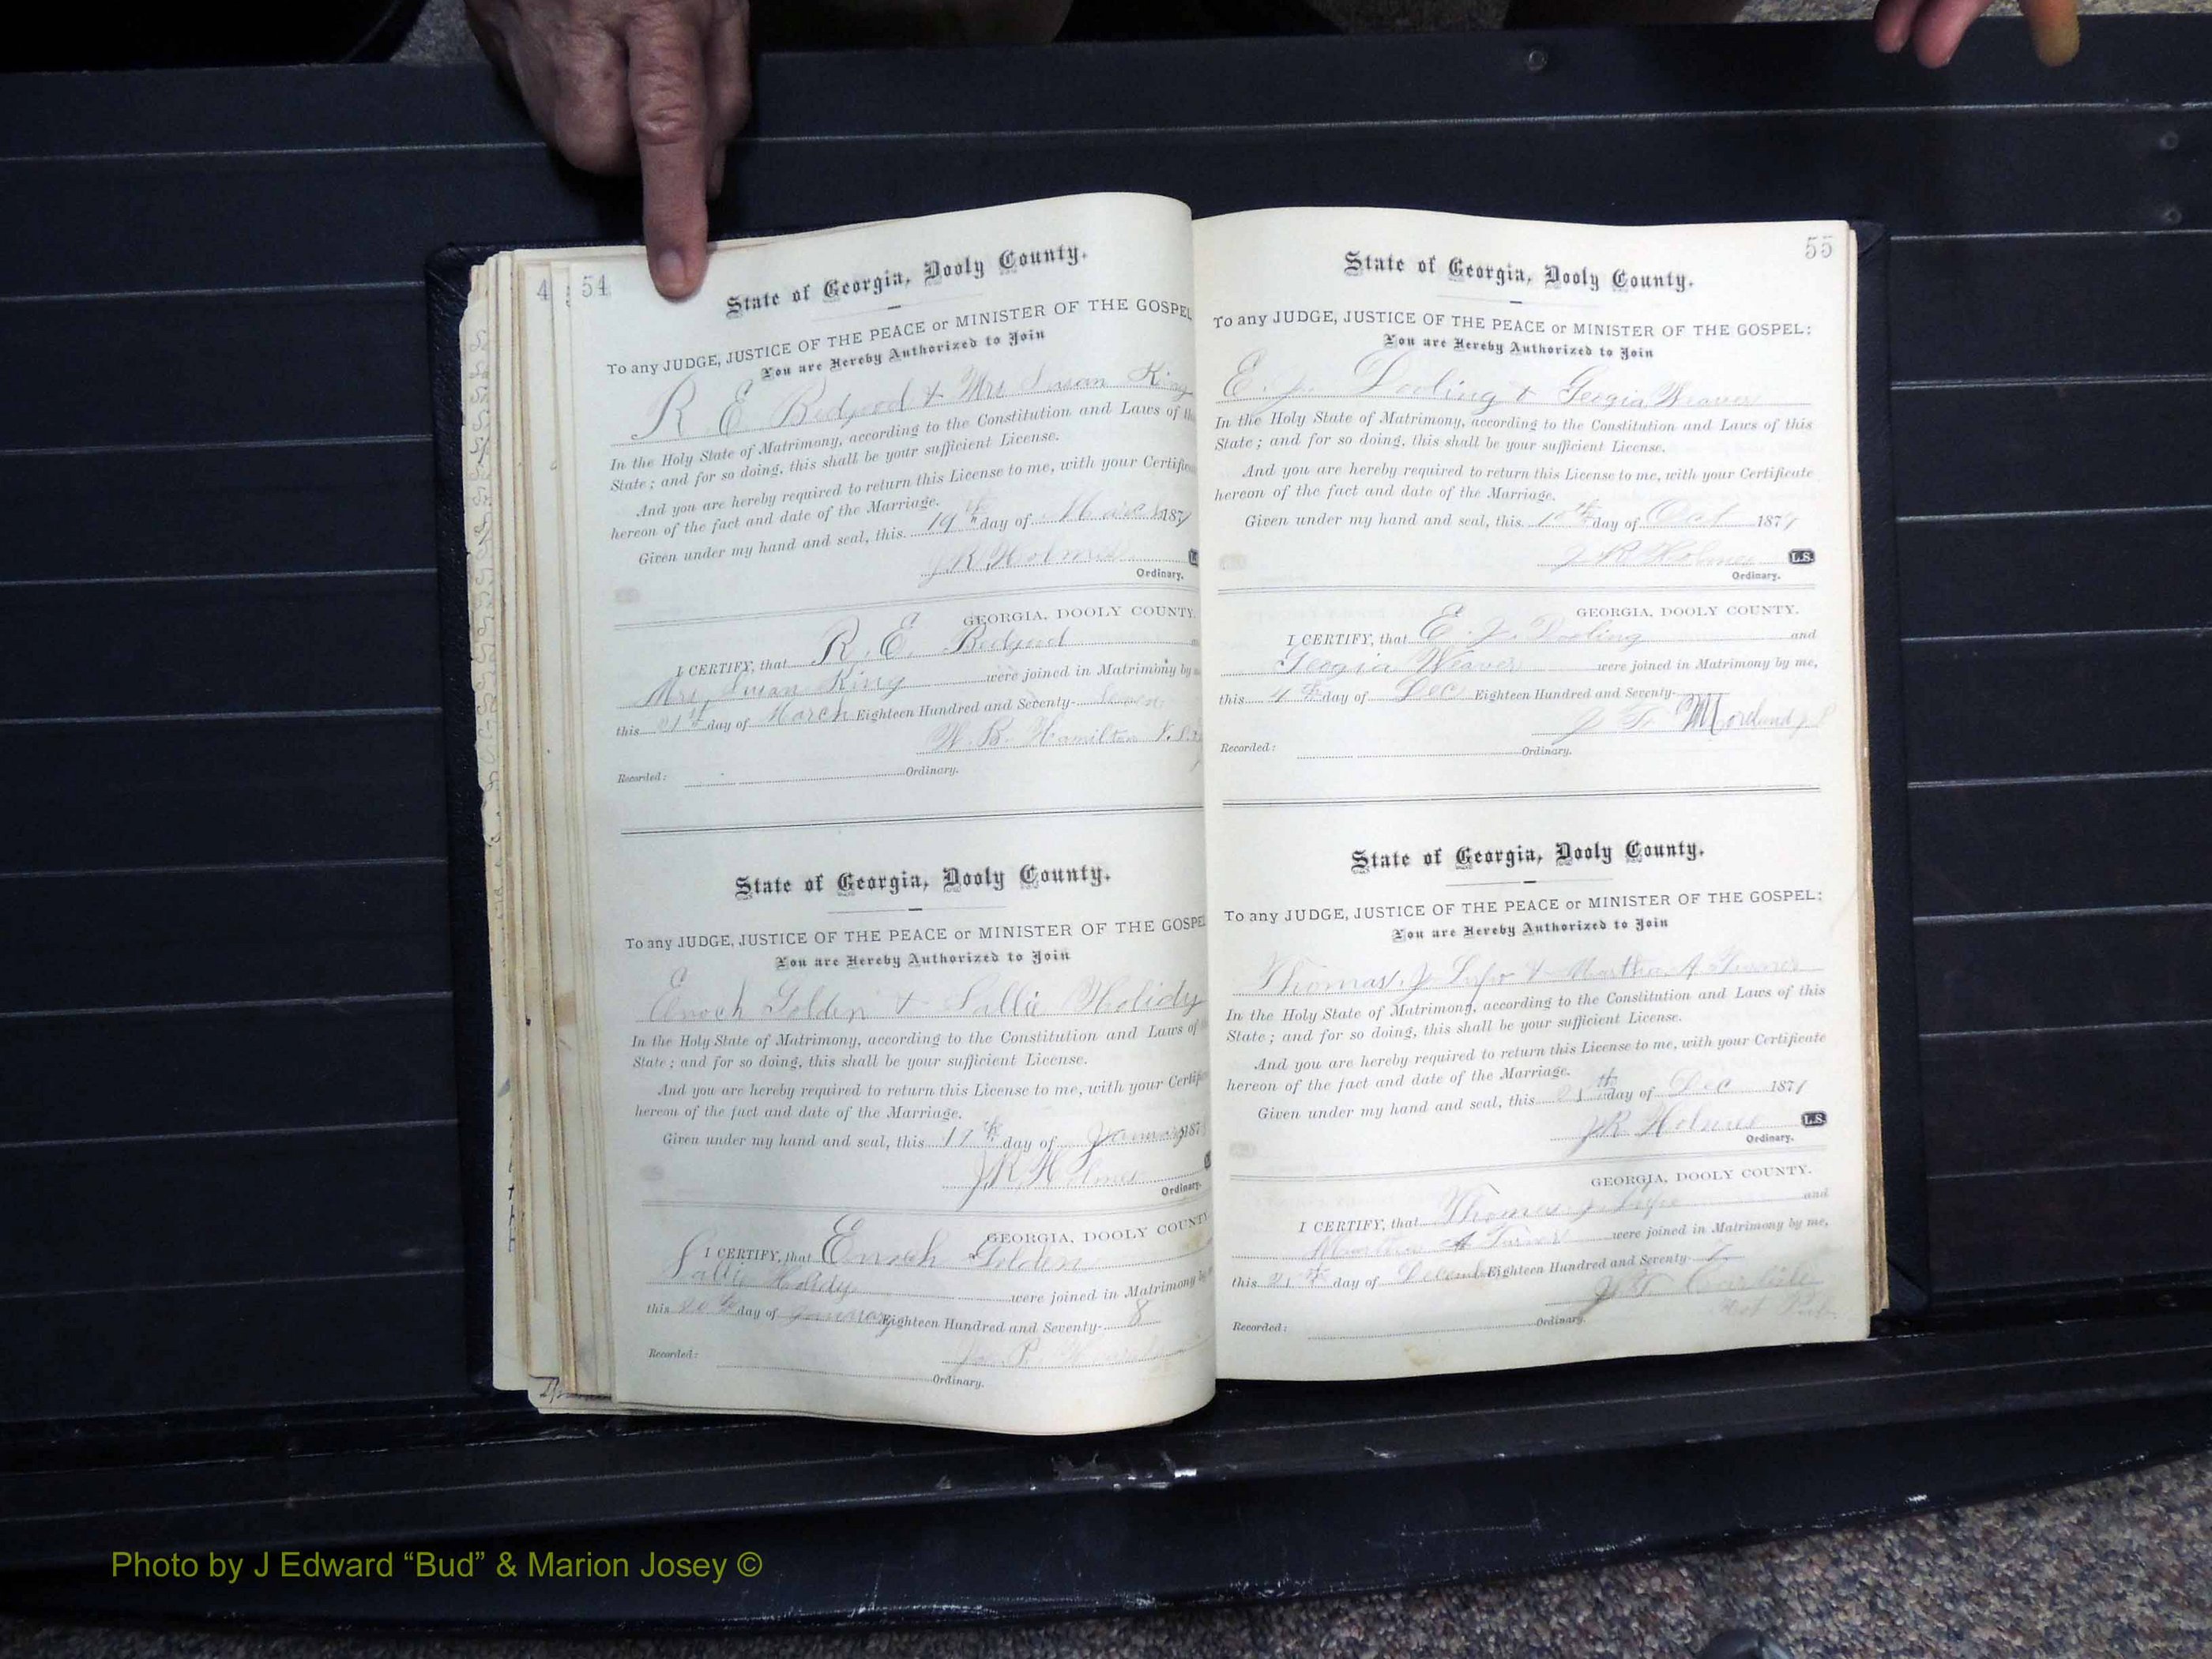 4 54
State of Georgia, Dooly County.
To any JUDGE, JUSTICE OF THE PEACE or MINISTER OF THE GOSPEL
You are Hereby Authorized to Join
R E Bedgood & Mrs Susan King
In the Holy State of Matrimony, according to the Constitution and Laws of
State; and for so doing, this shall be your sufficient License.
And you are hereby required to return this License to me, with your
hereon of the fact and date of the Marriage.
Given under my hand and seal, this 19th day of March 187
J R Holmes
Ordinary.
GEORGIA, DOOLY COUNTY
I CERTIFY, that R. E. Bedgood
Mrs Susan King were joined in Matrimony by
this 21st day of March Eighteen Hundred and Seventy-
W. B. Hamilton
Recorded: Ordinary.
State of Georgia, Dooly County.
To any JUDGE, JUSTICE OF THE PEACE or MINISTER OF THE GOSPE
You are Hereby Authorized to Join
Enoch Golden & Sallie Holidy
In the Holy State of Matrimony, according to the Constitution and Laws of
State; and for so doing, this shall be your sufficient License.
And you are hereby required to return this License to me, with your
hereon of the fact and date of the Marriage.
Given under my hand and seal, this 17th day of January 187
J R Holmes
Ordinary.
GEORGIA, DOOLY COUNTY
I CERTIFY, that Enoch Golden
Sallie Holidy were joined in Matrimony
this 20th day of January Eighteen Hundred and Seventy- 8
Recorded: Ordinary.
55
State of Georgia, Dooly County.
To any JUDGE, JUSTICE OF THE PEACE or MINISTER OF THE GOSPEL:
You are Hereby Authorized to Join
E. J. Dooling & Geogia Weaver
In the Holy State of Matrimony, according to the Constitution and Laws of this
State; and for so doing, this shall be your sufficient License.
And you are hereby required to return this License to me, with your Certificate
hereon of the fact and date of the Marriage.
Given under my hand and seal, this day of Oct 187
J R Holmes L.S.
Ordinary.
GEORGIA, DOOLY COUNTY.
I CERTIFY, that E. J. Dooling and
Geogia Weaver were joined in Matrimony by me,
this day of Dec Eighteen Hundred and Seventy-
J T Moreland
Recorded: Ordinary.
State of Georgia, Dooly County.
To any JUDGE, JUSTICE OF THE PEACE or MINISTER OF THE GOSPEL:
You are Hereby Authorized to Join
Thomas J & Martha A Turner
In the Holy State of Matrimony, according to the Constitution and Laws of this
State; and for so doing, this shall be your sufficient License.
And you are hereby required to return this License to me, with your Certificate
hereon of the fact and date of the Marriage.
Given under my hand and seal, this day of Dec 187
J R Holmes L.S.
Ordinary.
GEORGIA, DOOLY COUNTY.
I CERTIFY, that Thomas J and
Martha A Turner were joined in Matrimony by me,
this day of Eighteen Hundred and Seventy- 7
Recorded: Ordinary.
Photo by J Edward “Bud” & Marion Josey ©